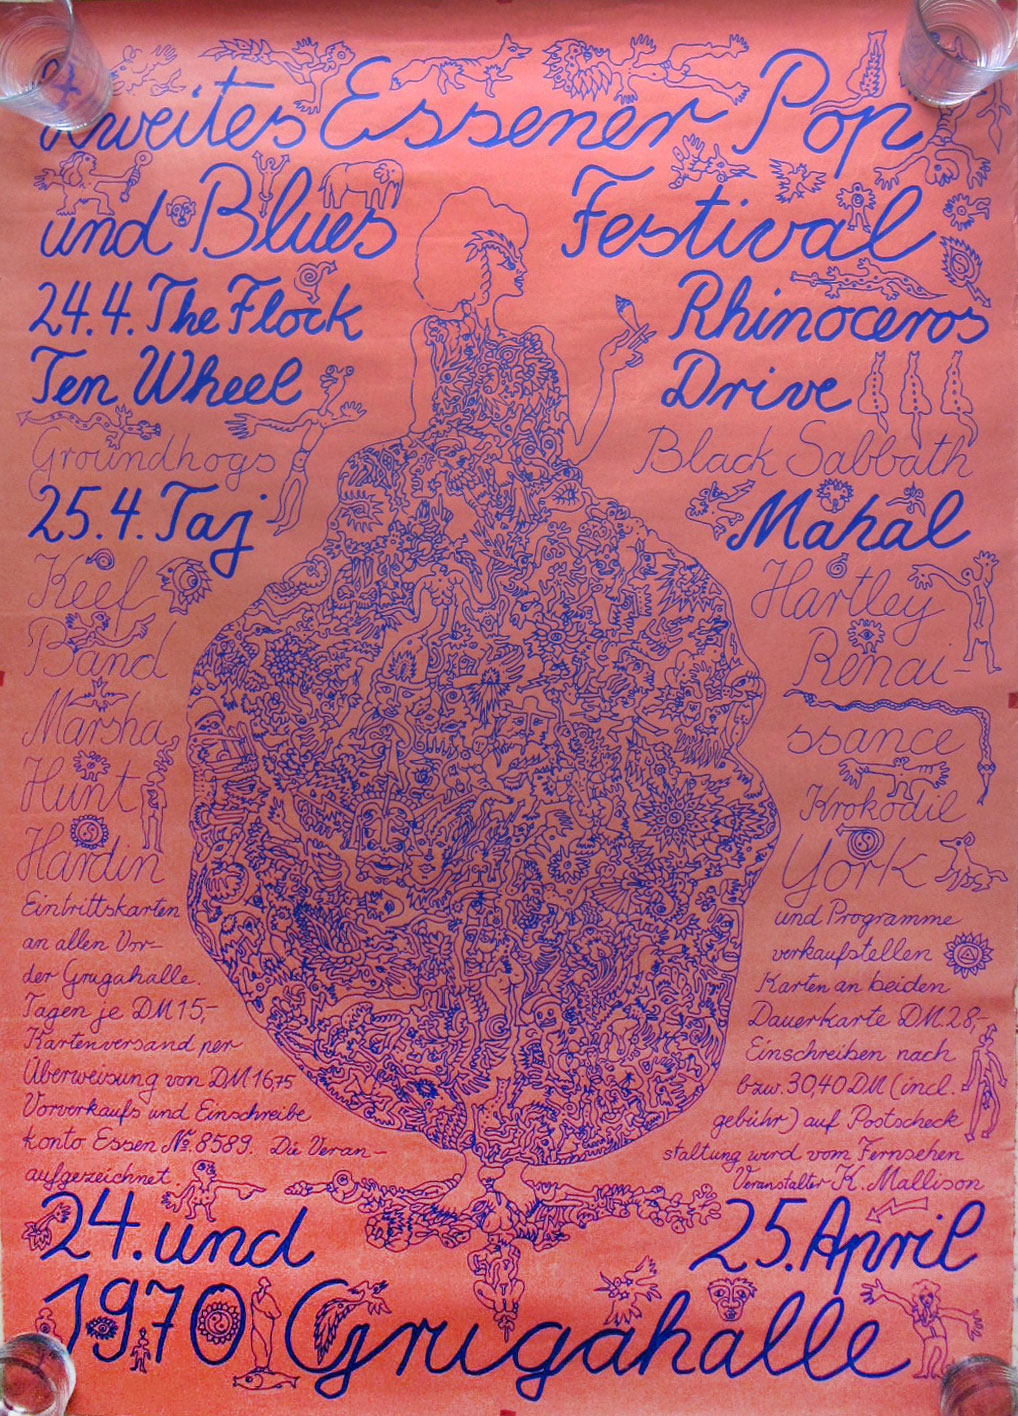 Zweites Essener Pop
und Blues Festival
24.4. The Flock Rhinoceros
Ten Wheel Drive
Groundhogs Black Sabbath
25.4. Taj Mahal
Keef Hartley
Band Renai-
Marsha ssance
Hunt Krokodil
Hardin York
Eintrittskarten und Programme
an allen Vor- verkaufstellen
der Grugahalle. Karten an beiden
Tagen je DM 15,- Dauerkarte DM. 28,-
Kartenversand per Einschreiben nach
Überweisung von DM 1675 bzw. 30,40 DM (incl.
Vorverkaufs und Einschreibe gebühr) auf Postscheck
konto Essen No. 8589. Die Veran- staltung wird vom Fernsehen
aufgezeichnet. Veranstalter K. Mallison
24. und 25. April
1970 Grugahalle